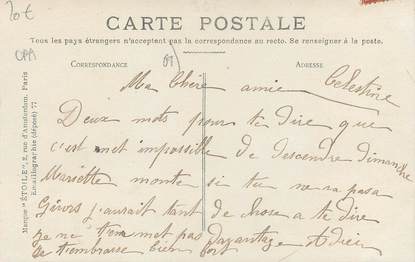 20€
CPA
69
CARTE POSTALE
Tous les pays étrangers n'acceptent pas la correspondance au recto. Se renseigner à la poste.
CORRESPONDANCE
ADRESSE
Marque "ÉTOILE", 2, rue d'Amsterdam, Paris
Émaillographie (déposé) 77
Ma Chère amie Celestine
Deux mots pour te dire que
c'est met impossible de descendre dimanche
Mariette monte si tu ne va pas a
Givors j'aurait tant de chose a te dire
je ne t'en met pas davantage Adieu
Je t'embrasse bien fort